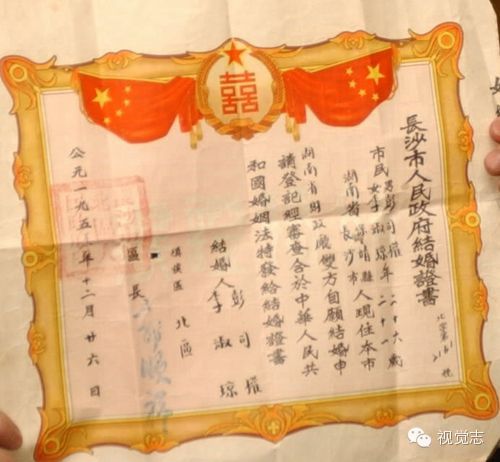 囍
長沙市人民政府結婚證書
北字第2161號
市民男彭司權年二十六歲
女李淑瓊年二十一
湖南省靖縣人現住本市
長沙市
湖南省財政廳雙方自願結婚申
請登記經審查合於中華人民共
和國婚姻法特發給結婚證書
結婚人彭司權
李淑瓊
填發區北區
區長
公元一九五 年十二月廿六日
視觉志